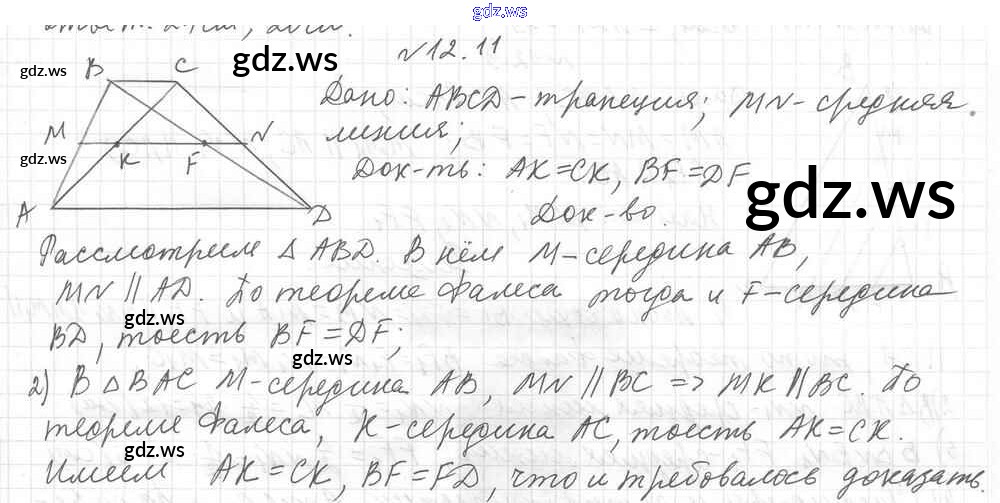 gdz.ws
№12.11
gdz.ws
gdz.ws
B C
Дано: ABCD-трапеция; MN-средняя
M N
линия;
K F
gdz.ws
Док-ть: AK=CK, BF=DF
gdz.ws
A D
Док-во.
Рассмотрим △ ABD. В нём M-середина AB,
MN ∥ AD. По теореме Фалеса тогда и F-середина
gdz.ws
BD, тоесть BF=DF;
gdz.ws
2) В △ BAC M-середина AB, MN ∥ BC => MK ∥ BC. По
теореме Фалеса, K-середина AC, тоесть AK=CK.
gdz.ws
gdz.ws
Имеем AK=CK, BF=FD, что и требовалось доказать.